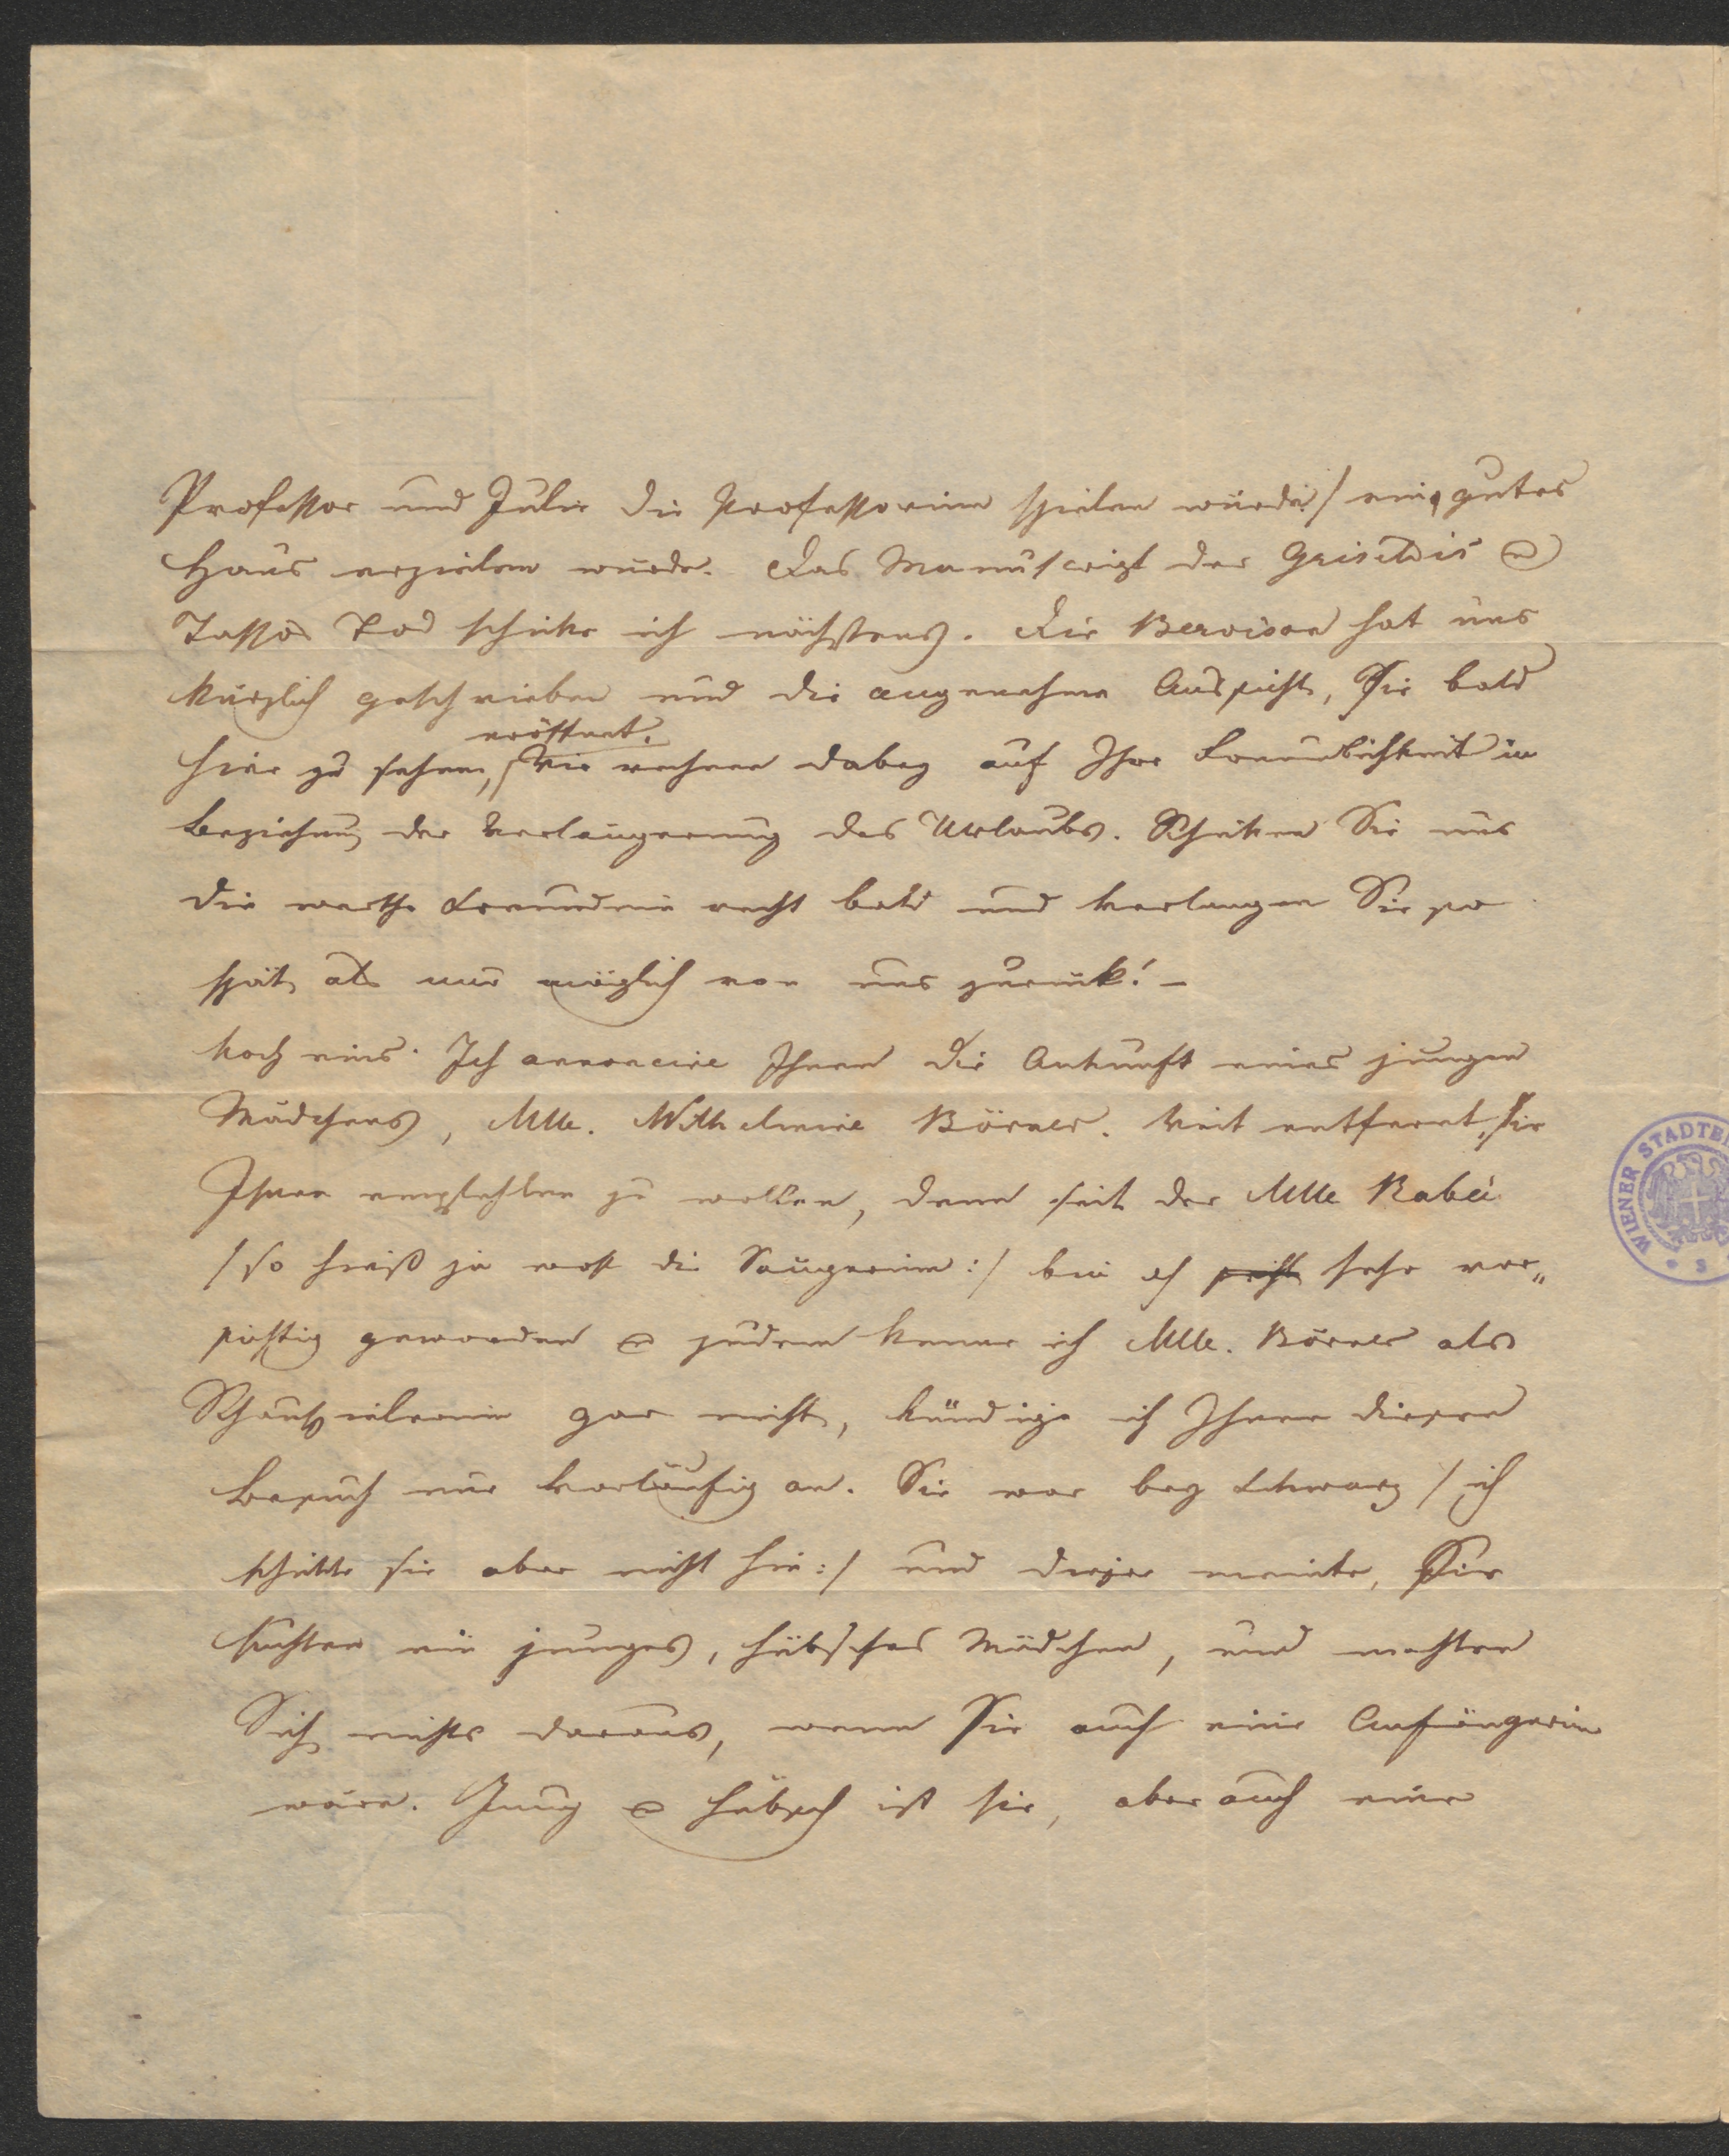 Professor und Julie die Professorinn spielen würde:/ ein gutes
Haus erzielen würde. Das Manuscript der Griseldis &
Tasso's Tod schicke ich nächstens. Die Bervison hat uns
kürzlich geschrieben und die angenehme Aussicht, Sie bald
eröffnet.
hier zu sehen, Wir rechnen dabey auf Ihre Freundlichkeit in
Beziehung der Verlängerung des Urlaubs. Schicken Sie uns
die werthe Freundinn recht bald und verlangen Sie so
spät als nur möglich von uns zurück! –
Noch eins. Ich annoncire Ihnen die Ankunft eines jungen
Mädchens, Mlle. Wilhelmine Börner. Weit entfernt, sie
Ihnen empfehlen zu wollen, denn seit der Mlle Rabei
/ so hieß ja wohl die Sängerinn :/ bin ich sehr vor„
sichtig geworden & zudem kenne ich Mlle. Börner als
Schauspielerinn gar nicht, kündige ich Ihnen diesen
Besuch nur vorläufig an. Sie war bey Schwarz / ich
schickte sie aber nicht hin :/ und dieser meinte, Sie
suchten ein junges, hübsches Mädchen, und machten
Sich nichts daraus, wenn sie auch eine Anfängerinn
wäre. Jung & hübsch ist sie, aber auch eine
WIENER STADTB
S